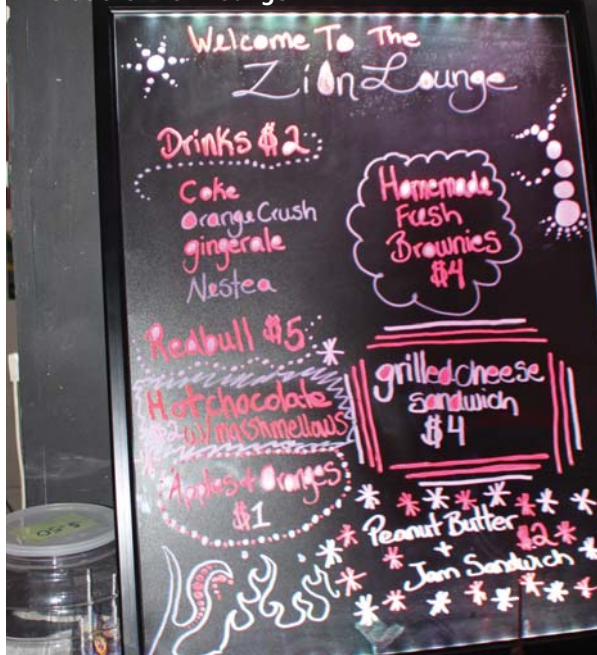 Welcome To The
Zion Lounge
Drinks $2
Coke
Orange Crush
gingerale
Nestea
Redbull $5
Hot chocolate
$2 w/ marshmellows
Apples + Oranges
$1
Homemade
Fresh
Brownies
$4
grilled cheese
sandwich
$4
Peanut Butter $2
+
Jam Sandwich